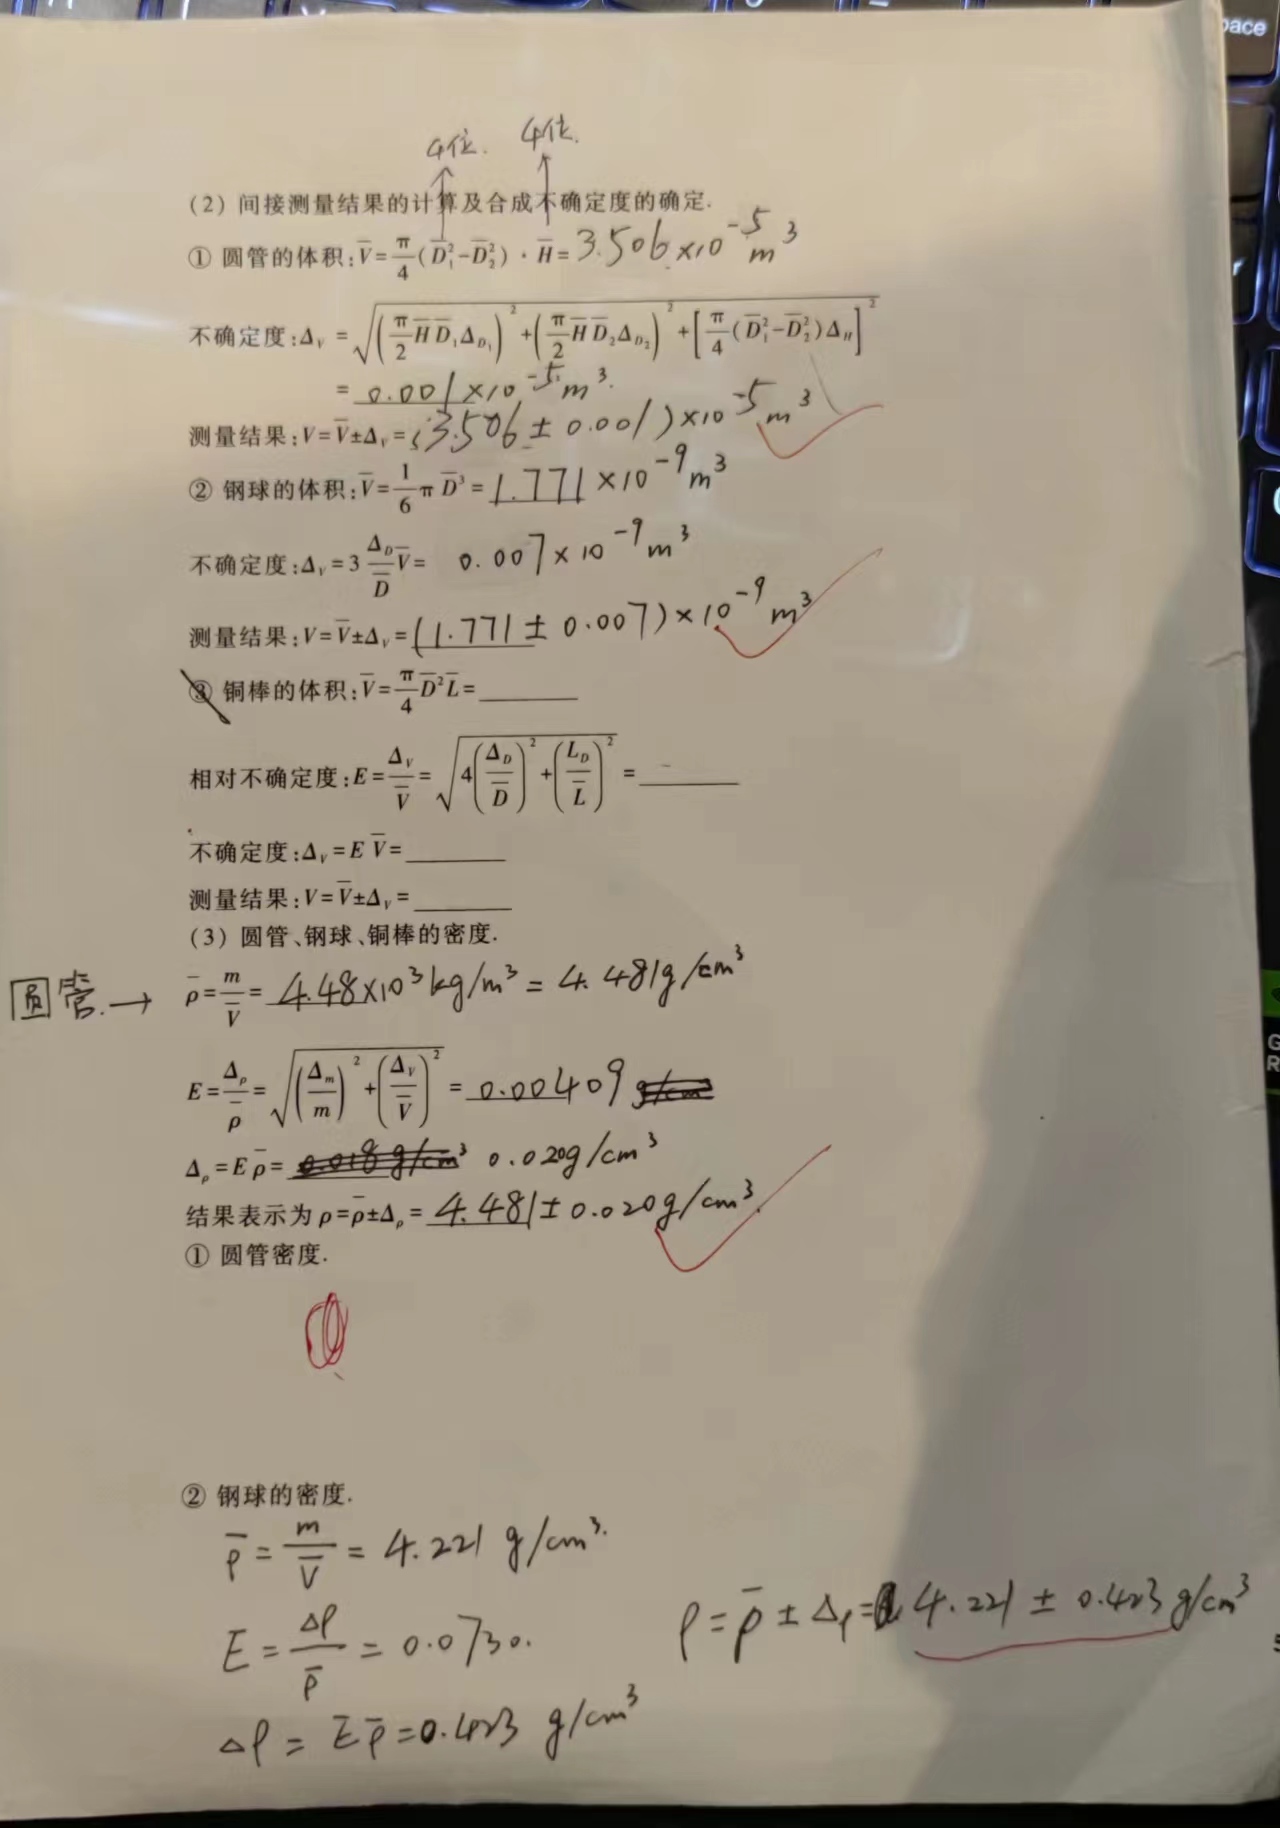 pace
4位. 4位.
(2) 间接测量结果的计算及合成不确定度的确定.
① 圆管的体积:V̅=π/4(D̅₁²-D̅₂²)·H̅=3.506×10⁻⁵m³
不确定度:Δ_V=√((π/2 H̅D̅₁Δ_D₁)²+(π/2 H̅D̅₂Δ_D₂)²+[π/4(D̅₁²-D̅₂²)Δ_H]²)
=0.001×10⁻⁵m³.
测量结果:V=V̅±Δ_V=(3.506±0.001)×10⁻⁵m³
② 钢球的体积:V̅=1/6πD̅³=1.771×10⁻⁹m³
不确定度:Δ_V=3Δ_D/D̅ V̅=0.007×10⁻⁹m³
测量结果:V=V̅±Δ_V=(1.771±0.007)×10⁻⁹m³
③ 铜棒的体积:V̅=π/4D̅²L̅=
相对不确定度:E=Δ_V/V̅=√(4(Δ_D/D̅)²+(L_D/L̅)²)=
不确定度:Δ_V=E V̅=
测量结果:V=V̅±Δ_V=
(3) 圆管、钢球、铜棒的密度.
圆管.→ ρ̅=m/V̅=4.48×10³kg/m³=4.481g/cm³
E=Δ_ρ/ρ̅=√((Δ_m/m)²+(Δ_V/V̅)²)=0.00409 g/cm
Δ_ρ=Eρ̅=0.018g/cm³ 0.020g/cm³
结果表示为ρ=ρ̅±Δ_ρ=4.481±0.020g/cm³.
① 圆管密度.
② 钢球的密度.
ρ̅=m/V̅=4.221 g/cm³.
E=Δρ/ρ̅=0.0730.
ρ=ρ̅±Δρ=4.221±0.423g/cm³
Δρ=E̅ρ̅=0.423 g/cm³